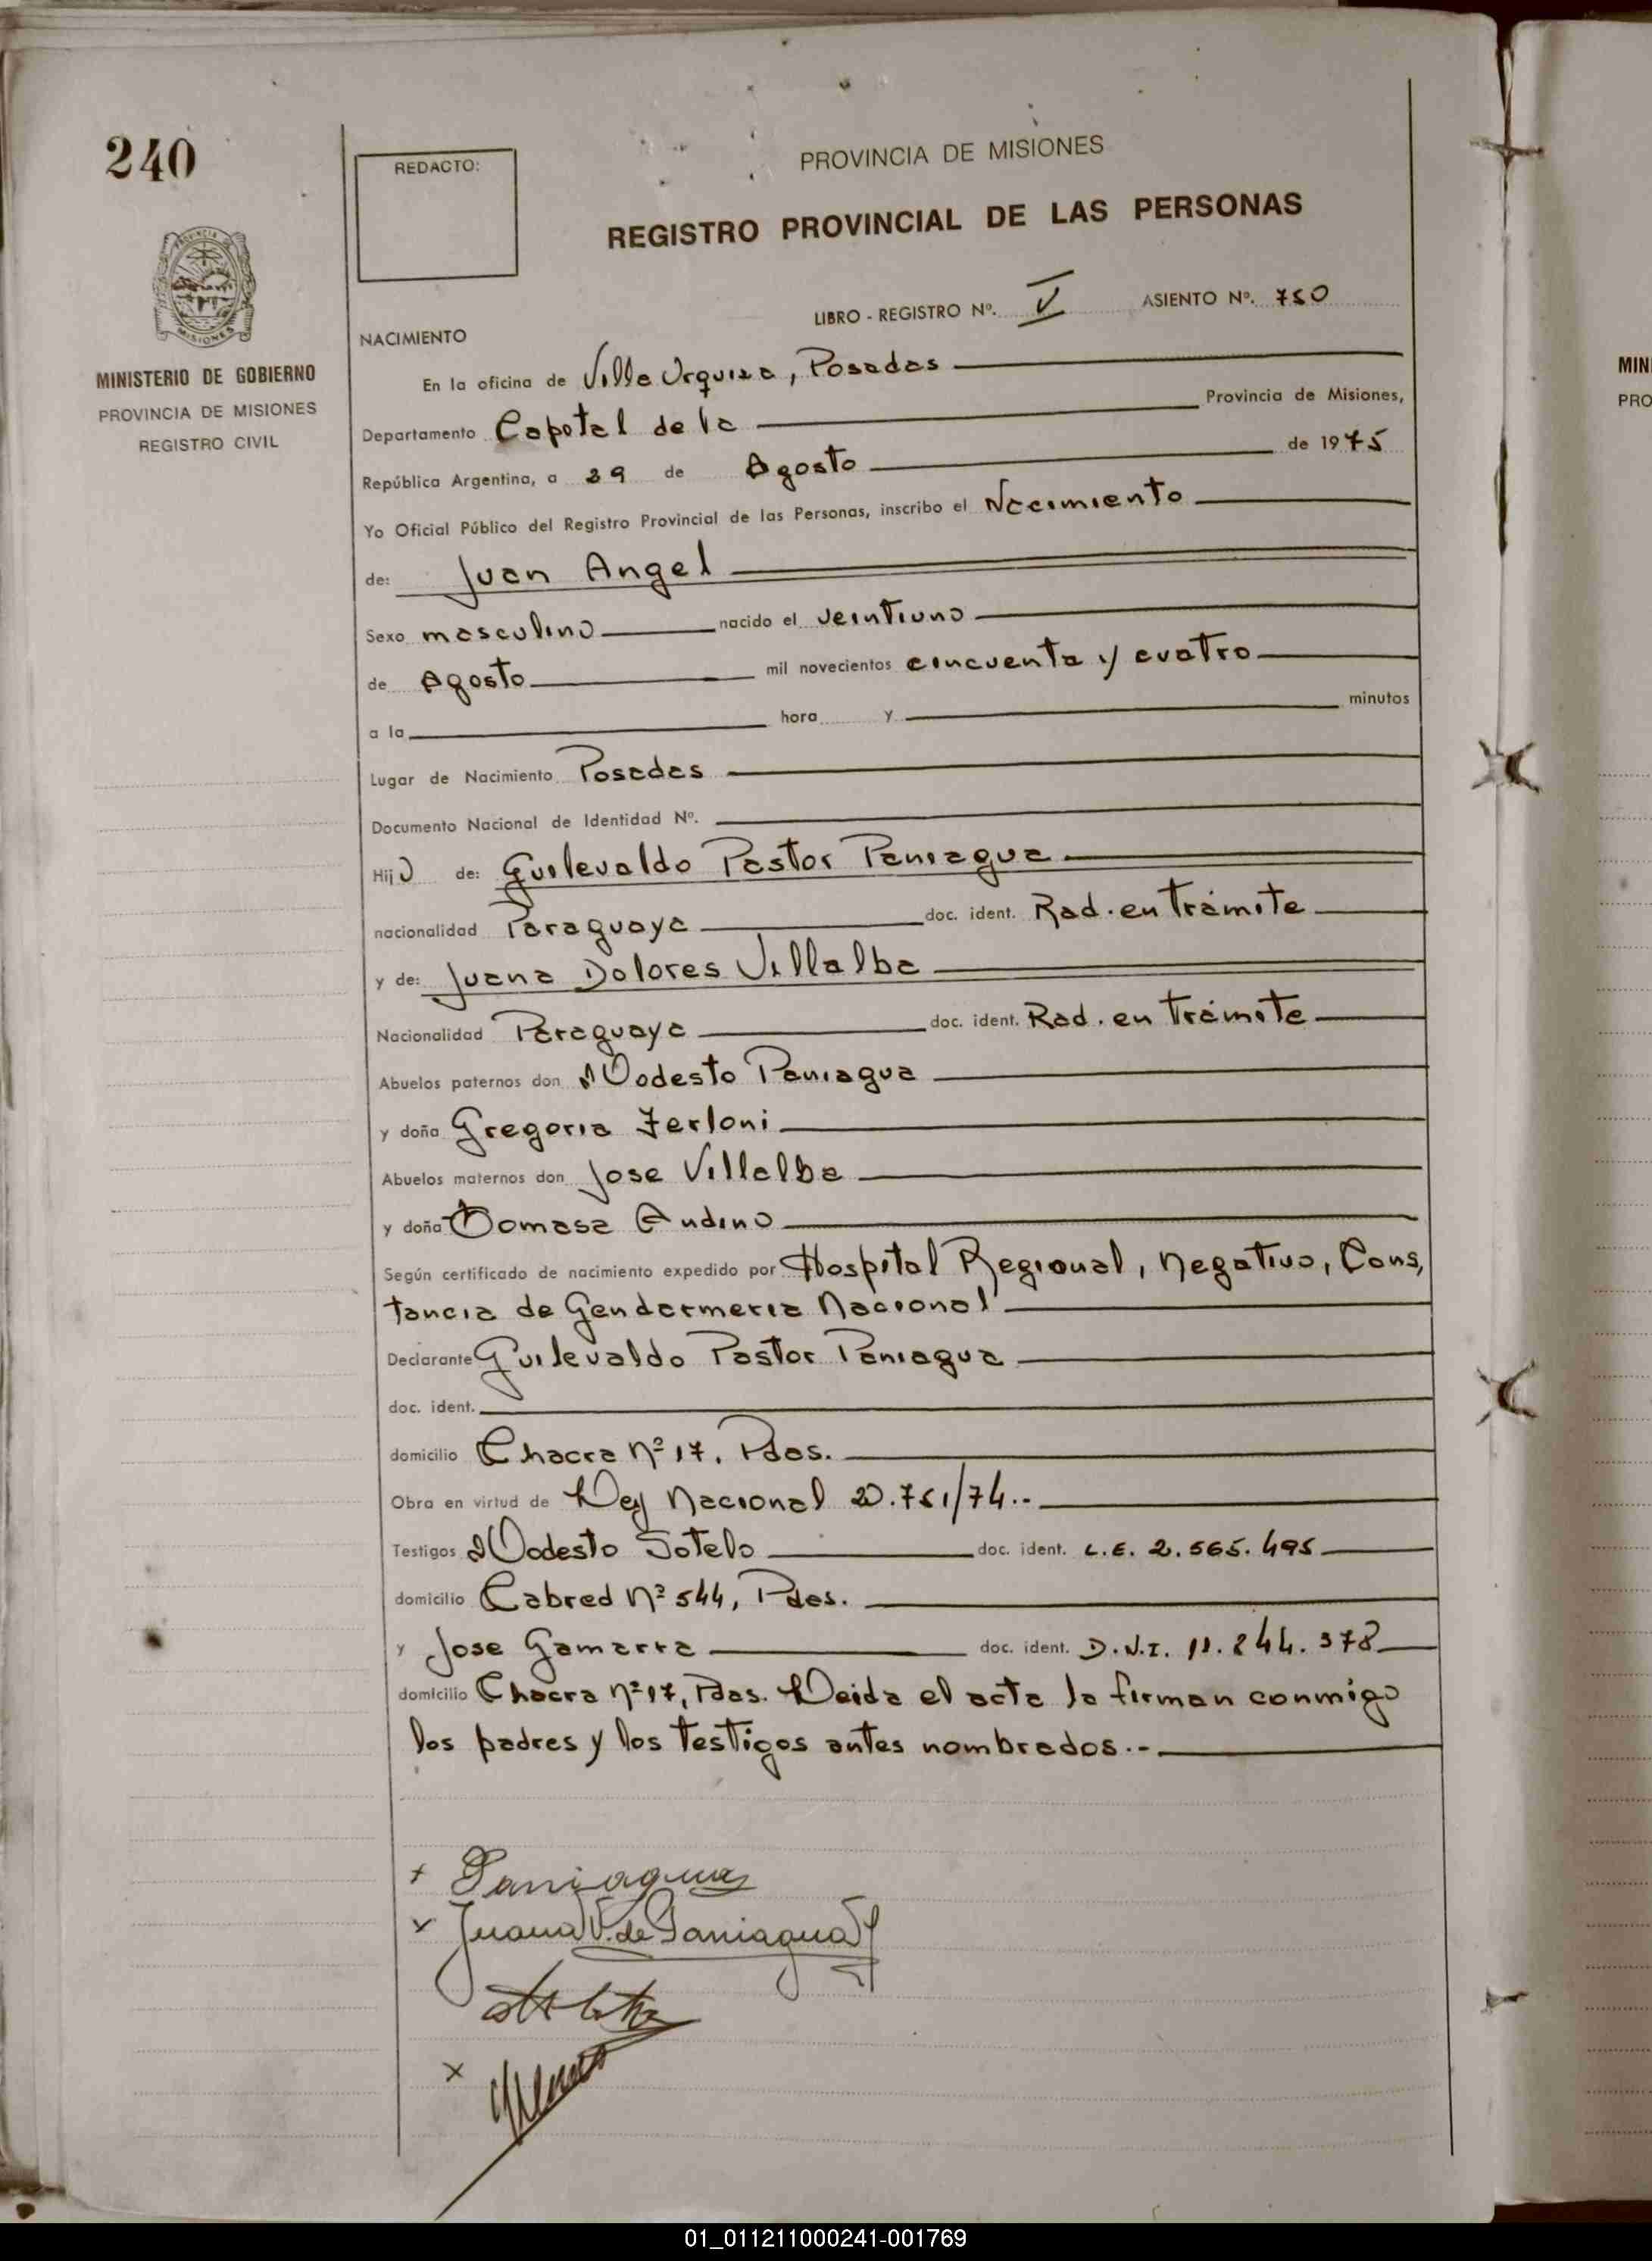 240
REDACTO:
PROVINCIA DE MISIONES
REGISTRO PROVINCIAL DE LAS PERSONAS
PROVINCIA DE
MISIONES
MINISTERIO DE GOBIERNO
PROVINCIA DE MISIONES
REGISTRO CIVIL
LIBRO - REGISTRO Nº. V ASIENTO Nº. 750
NACIMIENTO
En la oficina de Villa Urquiza, Posadas
Departamento Capital de la Provincia de Misiones,
República Argentina, a 29 de Agosto de 1975
Yo Oficial Público del Registro Provincial de las Personas, inscribo el Nacimiento
de: Juan Angel
Sexo masculino nacido el veintiuno
de Agosto mil novecientos cincuenta y cuatro
a la hora y minutos
Lugar de Nacimiento Posadas
Documento Nacional de Identidad Nº.
Hijo de: Guilevaldo Pastor Paniagua
nacionalidad Paraguaya doc. ident. Rad. en Trámite
y de: Juana Dolores Villalba
Nacionalidad Paraguaya doc. ident. Rad. en Trámite
Abuelos paternos don Modesto Paniagua
y doña Gregoria Ferloni
Abuelos maternos don Jose Villalba
y doña Tomasa Audino
Según certificado de nacimiento expedido por Hospital Regional, Negativo, Cons,
tancia de Gendarmeria Nacional
Declarante Guilevaldo Pastor Paniagua
doc. ident.
domicilio Chacra Nº 17, Pdas.
Obra en virtud de Ley Nacional 20.751/74.-
Testigos Modesto Sotelo doc. ident. L.E. 2.565.495
domicilio Cabred Nº 544, Pdas.
y Jose Gamarra doc. ident. D.N.I. 11.244.378
domicilio Chacra Nº 17, Pdas. Leida el acta la firman conmigo
los padres y los testigos antes nombrados.-
x Paniagua
x Juana V. de Paniagua
x
MIN
PRO
01_011211000241-001769